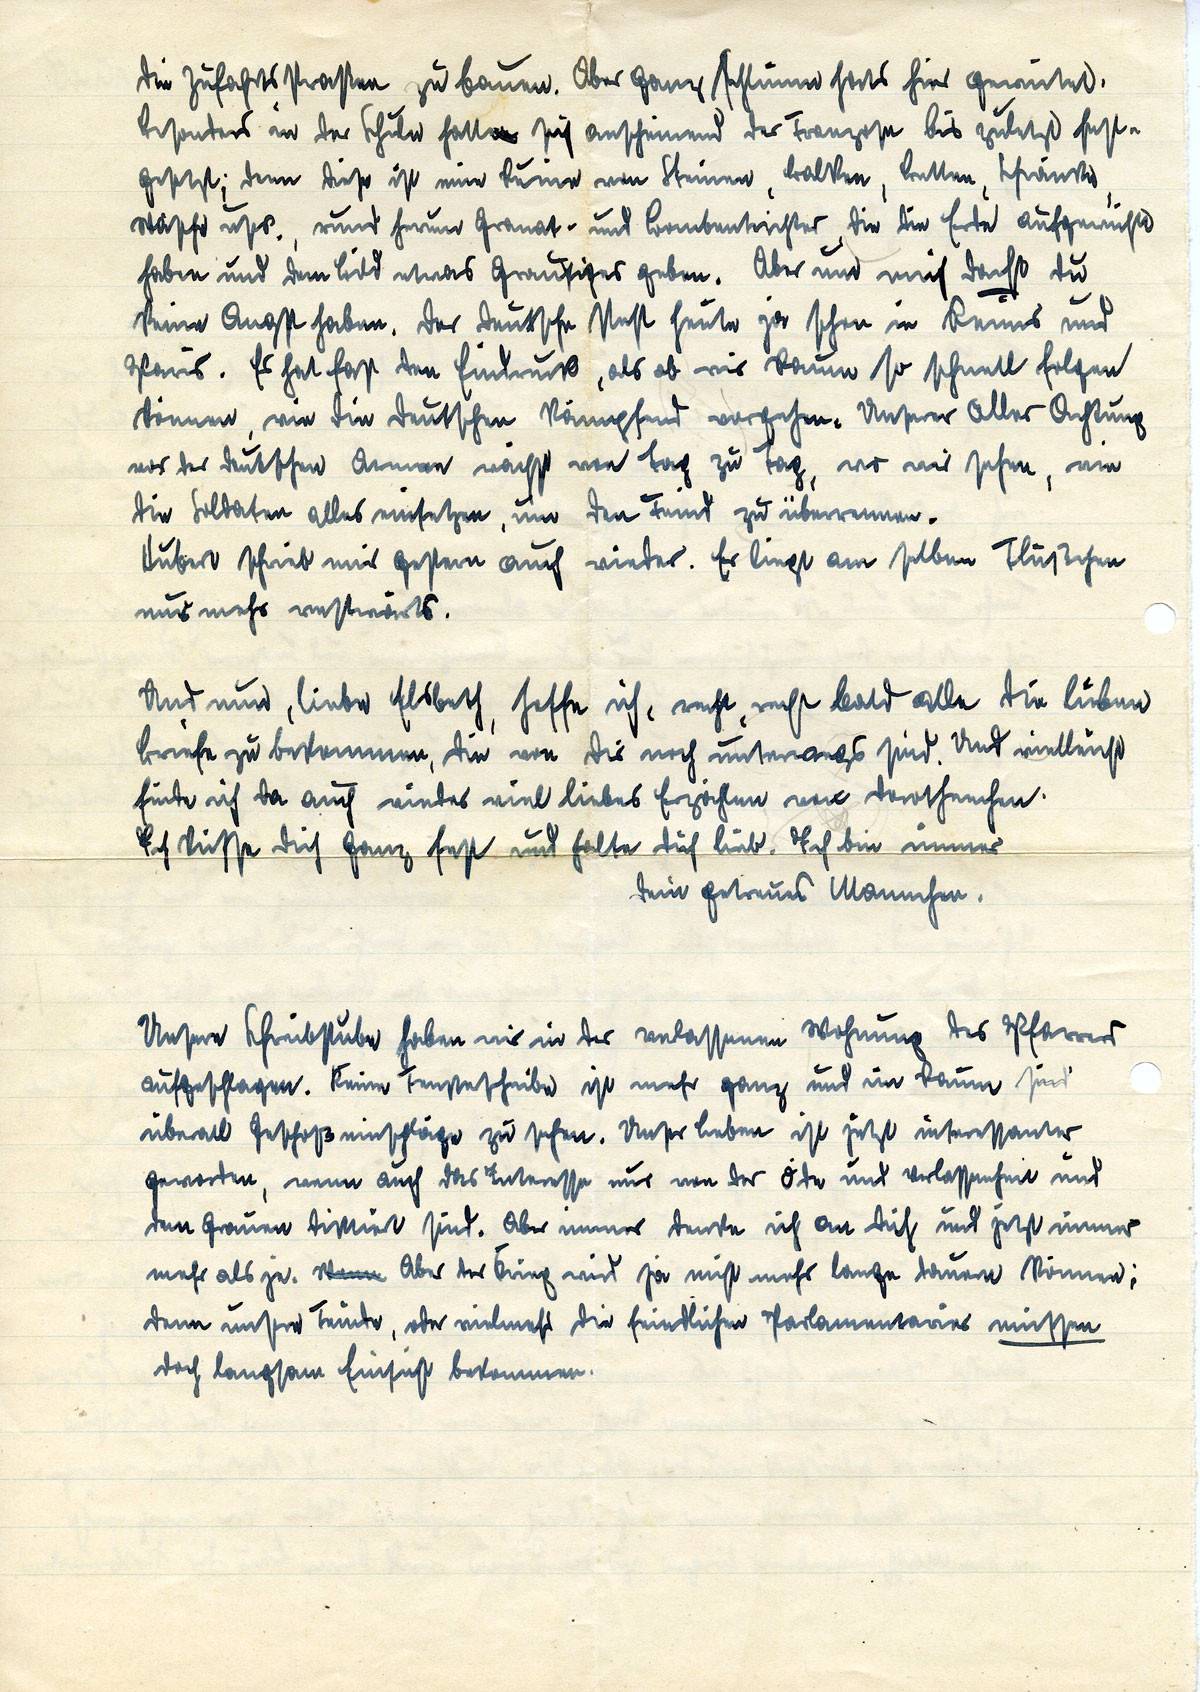 die Zufahrtsstraßen zu bauen. Aber ganz schlimm hats hier gewütet.
Besonders in der Schule hatte sich anscheinend der Franzose bis zuletzt fest-
gesetzt; denn diese ist eine Ruine von Steinen, Balken, Betten, Schränke,
Wäsche usw., rund herum Granat- und Bombentrichter, die die Erde aufgewühlt
haben und dem Bild etwas Grausiges geben. Aber um mich darfst du
keine Angst haben. Der Deutsche steht heute ja schon in Reims und
Paris. Es hat fast den Eindruck, als ob wir kaum so schnell folgen
können, wie die Deutschen kämpfend vorgehen. Unserer aller Achtung
vor der deutschen Armee wächst von Tag zu Tag, wo wir sehen, wie
die Soldaten alles einsetzen, um den Feind zu überrennen.
Hubert schrieb mir gestern auch wieder. Er liegt am selben Flüßchen
nur mehr westwärts.
Und nun, liebe Elsbeth, hoffe ich, recht, recht bald alle die lieben
Briefe zu bekommen, die von Dir noch unterwegs sind. Und vielleicht
finde ich da auch wieder viel liebes Erzählen von Dorotheechen.
Ich küsse Dich ganz fest und halte Dich lieb. Ich bin immer
Dein getreues Mannchen.
Unsere Schreibstube haben wir in der verlassenen Wohnung des Pfarrers
aufgeschlagen. Keine Fensterscheibe ist mehr ganz und im Raum sind
überall Geschoßeinschläge zu sehen. Unser Leben ist jetzt interessanter
geworden, wenn auch das Interesse nur von der Öde und Verlassenheit und
dem Grauen diktiert sind. Aber immer denke ich an Dich und jetzt immer
mehr als je. Wenn Aber der Krieg wird ja nicht mehr lange dauern können;
denn unsere Feinde, oder vielmehr die feindlichen Parlamentarier müssen
doch langsam Einsicht bekommen.